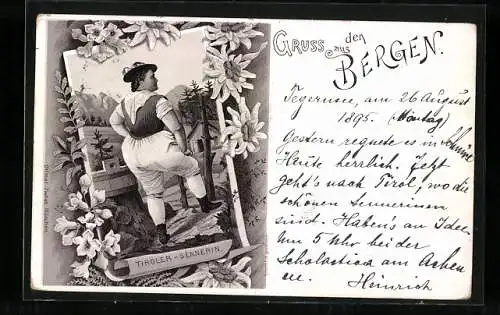 GRUSS aus den
BERGEN.
Tegernsee, am 26 August
1895. (Montag)
Gestern regnete es in
Heute herrlich. Jetzt
geht's nach Tirol, wo die
schönen Sennerinen
sind. Haben's an Idee.
Um 5 Uhr bei der
Scholastica am Achen
see. Heinrich
TIROLER-SENNERIN.